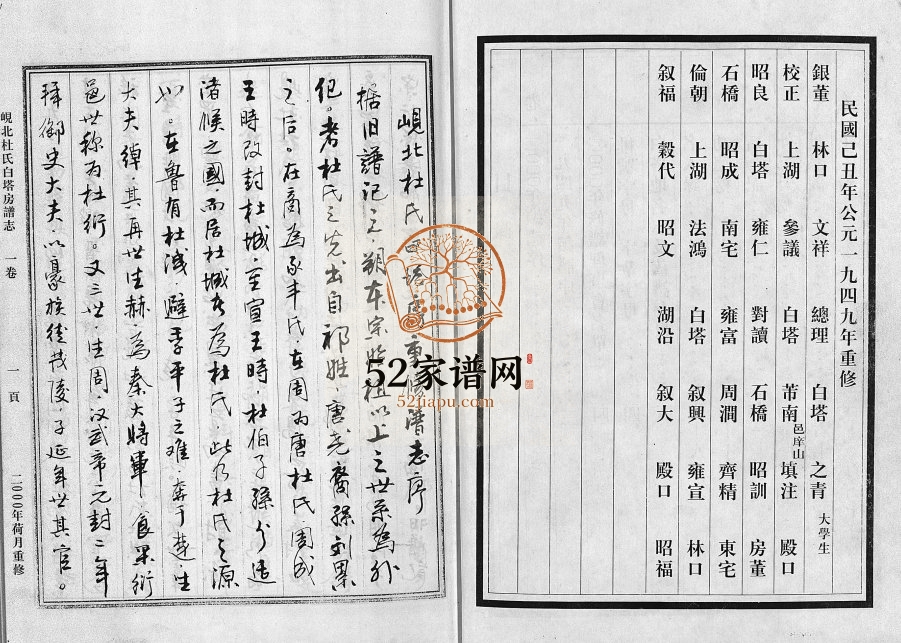 民國己丑年公元一九四九年重修
銀董 林口 文祥 總理 白塔 之青 大學生
校正 上湖 參議 白塔 芾南 邑庠山 填注 殿口
昭良 白塔 雍仁 對讀 石橋 昭訓 房董
石橋 昭成 南宅 雍富 周澗 齊精 東宅
倫朝 上湖 法鴻 白塔 叙興 雍宣 林口
叙福 穀代 昭文 湖沿 叙大 殿口 昭福
峴北杜氏白塔房重修譜志序
據旧譜记之，朔本宗始祖以上之世系為外
纪。考杜氏之先出自祁姓，唐尧裔孫刘累
之后。在商為豕韦氏，在周為唐杜氏，周成
王時改封杜城，至宣王時，杜伯子孫分适
诸候之國，而居杜城者為杜氏，此乃杜氏之源
也。在魯有杜洩，避季平子之难，奔于楚，生
大夫绰，其再世生赫，為秦大將軍，食采衍
邑世称為杜衍。又三世，生周，汉武帝元封二年
拜御史大夫，以豪族徙茂陵，子延年世其官。
峴北杜氏白塔房譜志 一卷 一頁 二000年荷月重修
52家谱网
52jiapu.com